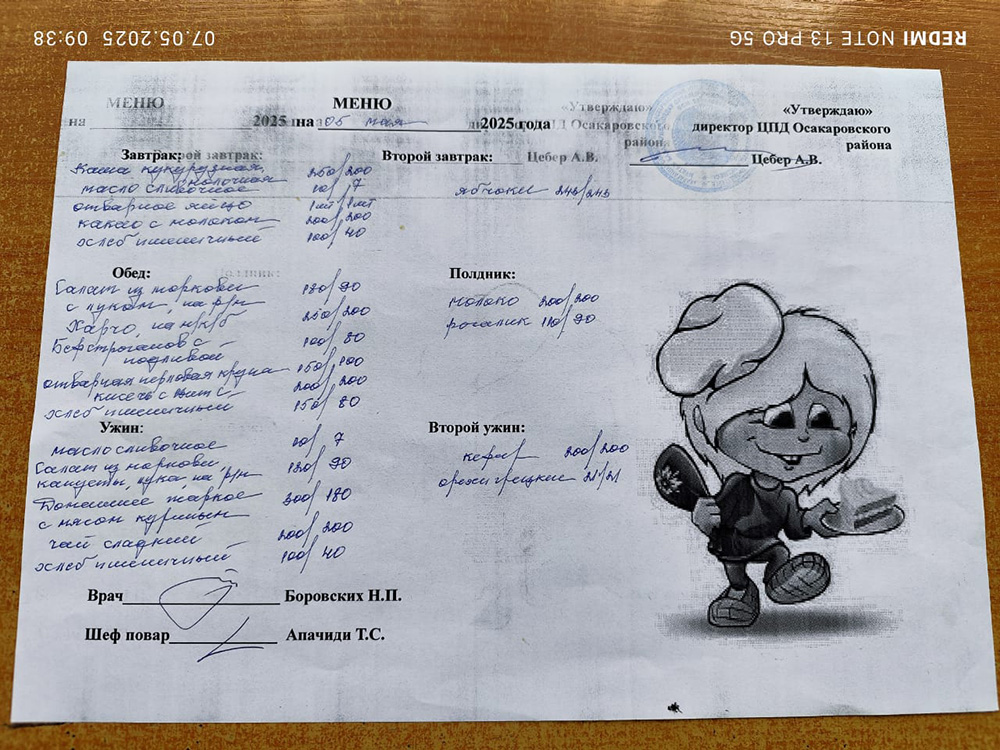 07.05.2025 09:38
REDMI NOTE 13 PRO 5G
МЕНЮ МЕНЮ «Утверждаю» «Утверждаю»
на 2025 на 05 мая 2025 года Осакаровского директор ЦПД Осакаровского
район района
Завтрак: Второй завтрак: Цебер А.В. Цебер А.В.
Каша кукурузная
молочная 250/200
масло сливочное 10/7
яблоки 243/243
отварное яйцо 1шт/1шт
какао с молоком 200/200
хлеб пшеничный 100/40
Обед: Полдник:
Салат из моркови
с луком, на р/м 120/90
молоко 200/200
Харчо, на мк/б 250/200
рогалик 110/90
Бефстроганов с
подливой 100/80
отварная перловая крупа 150/100
кисель с вит С 200/200
хлеб пшеничный 150/80
Ужин: Второй ужин:
масло сливочное 10/7
кефир 200/200
Салат из моркови,
капусты, лука на р/м 120/90
орехи грецкие 21/21
Домашнее жаркое
с мясом курицы 300/180
чай сладкий 200/200
хлеб пшеничный 100/40
Врач Боровских Н.П.
Шеф повар Апачиди Т.С.